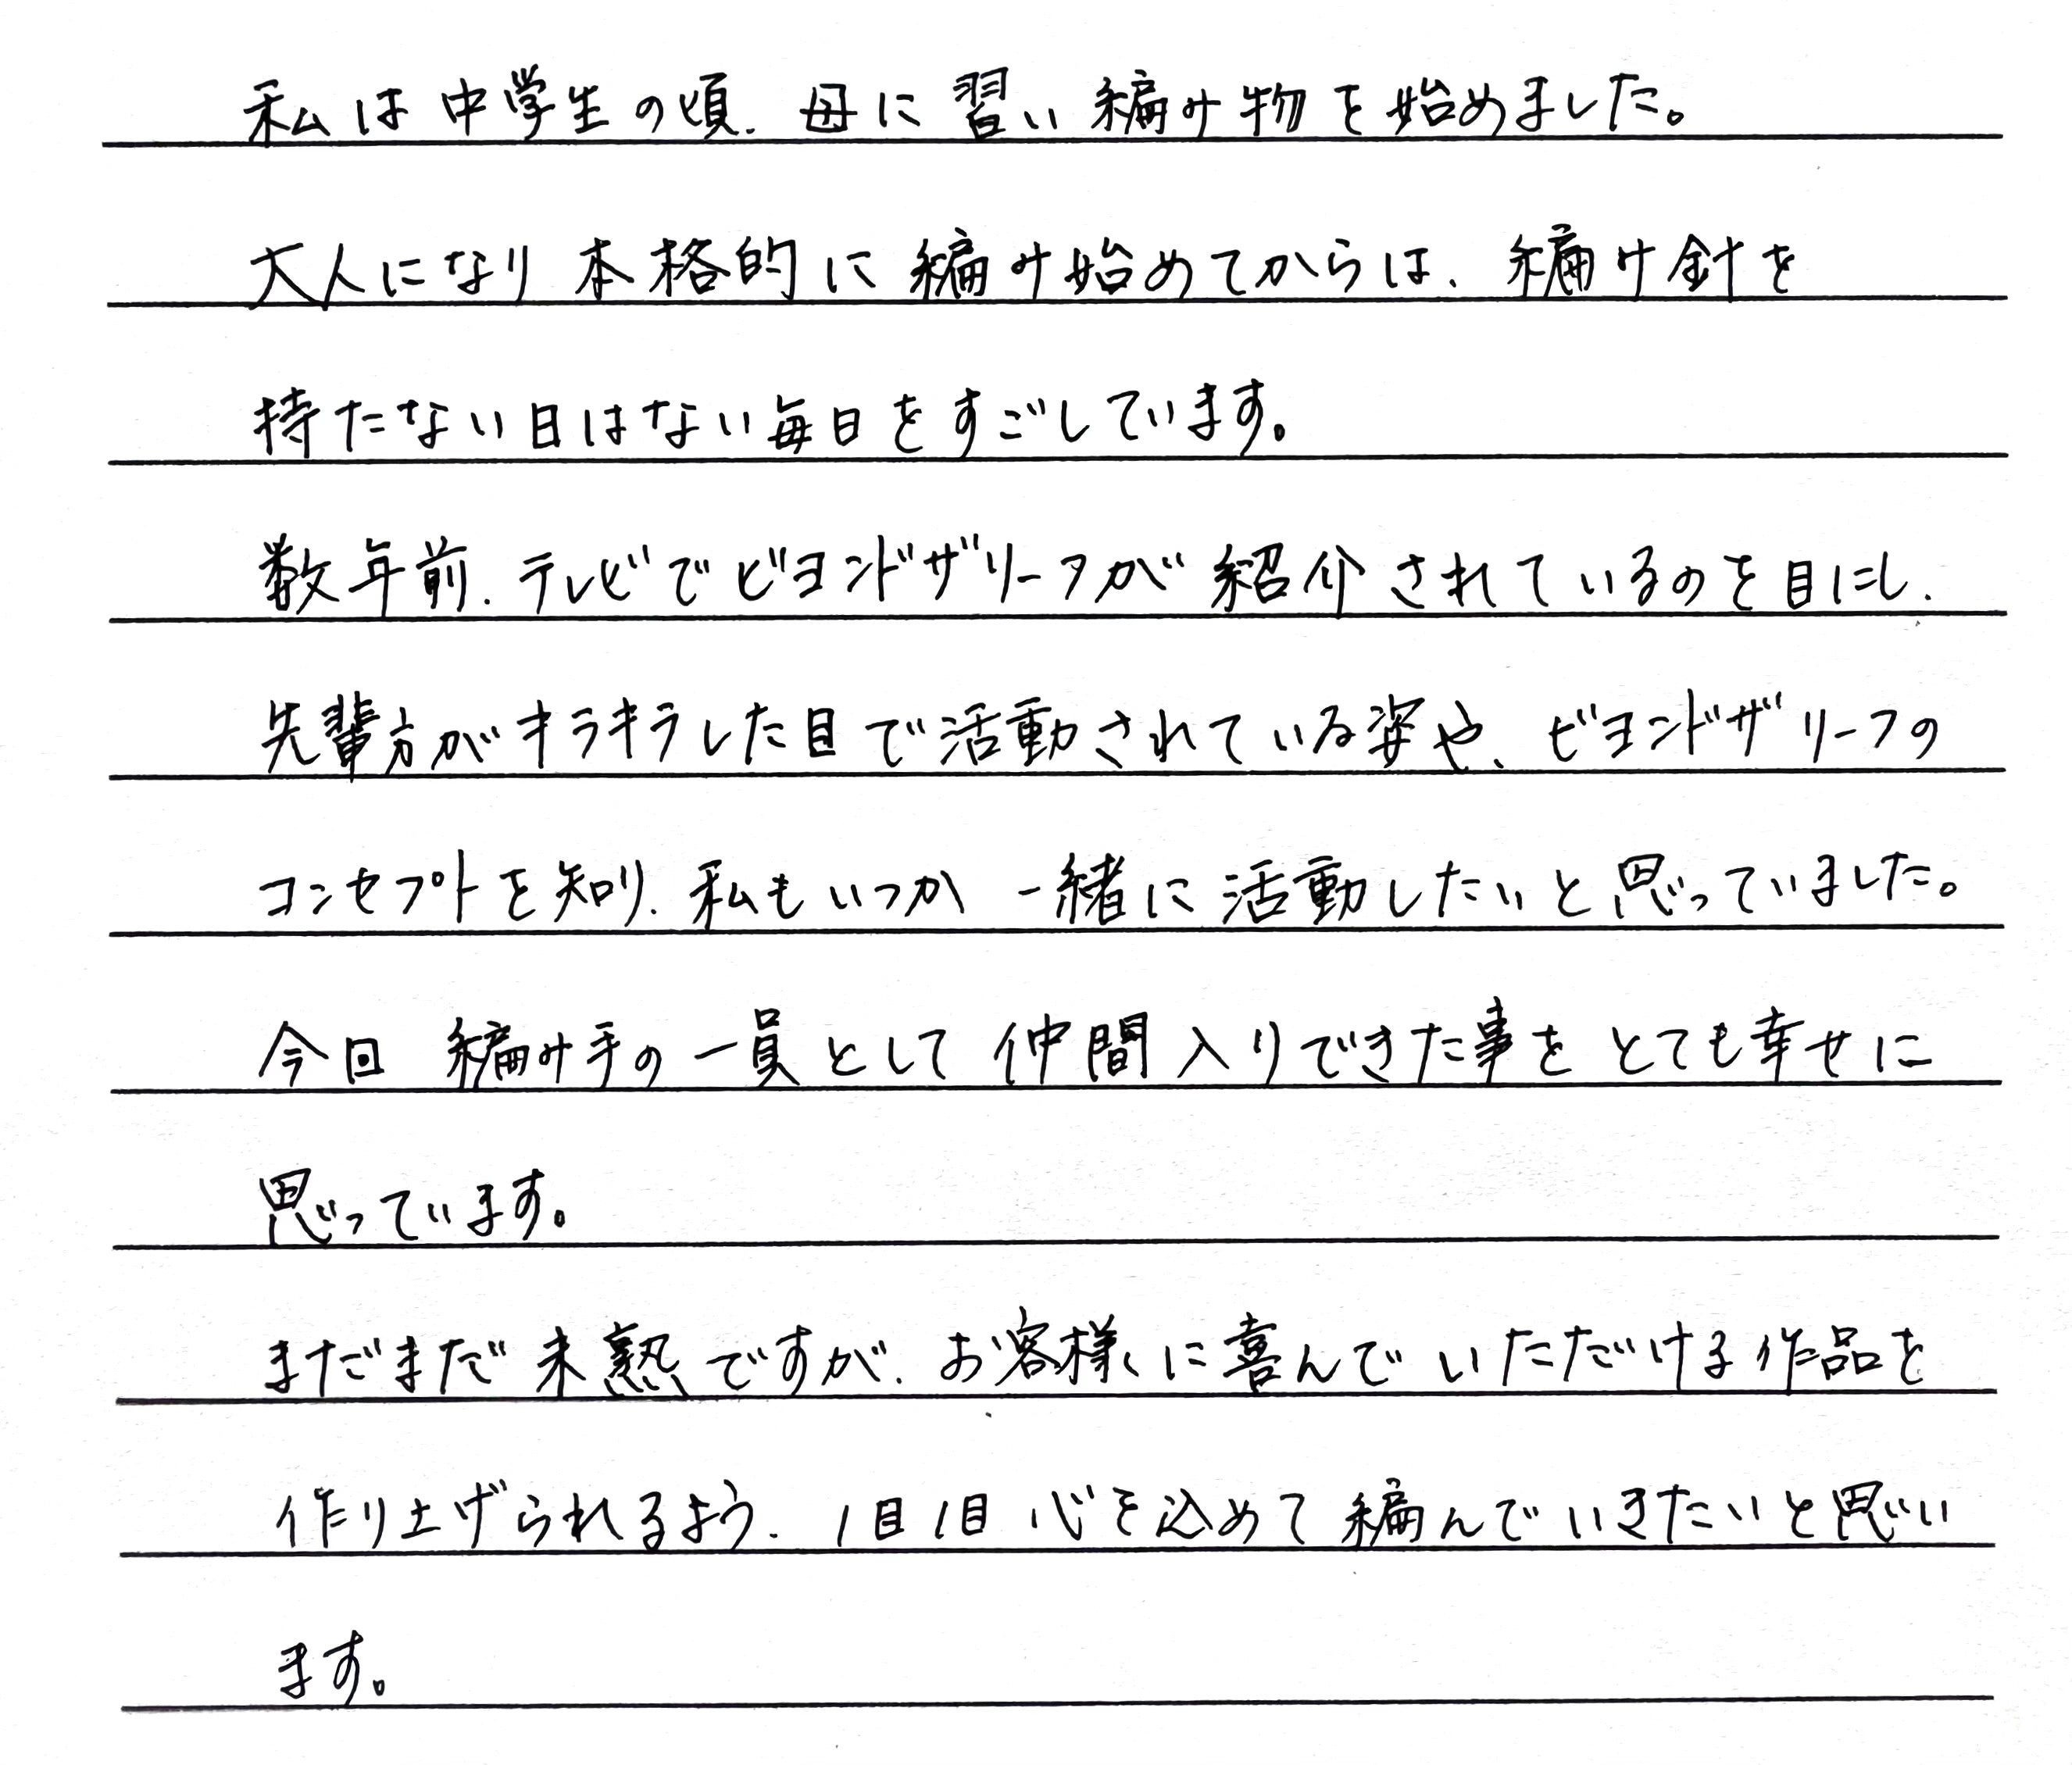 私は中学生の頃、母に習い編み物を始めました。
大人になり本格的に編み始めてからは、編み針を
持たない日はない毎日をすごしています。
数年前、テレビでビヨンドザリーフが紹介されているのを目にし、
先輩方がキラキラした目で活動されている姿や、ビヨンドザリーフの
コンセプトを知り、私もいつか一緒に活動したいと思っていました。
今回 編み手の一員として仲間入りできた事をとても幸せに
思っています。
まだまだ未熟ですが、お客様に喜んでいただける作品を
作り上げられるよう、1目1目心を込めて編んでいきたいと思い
ます。